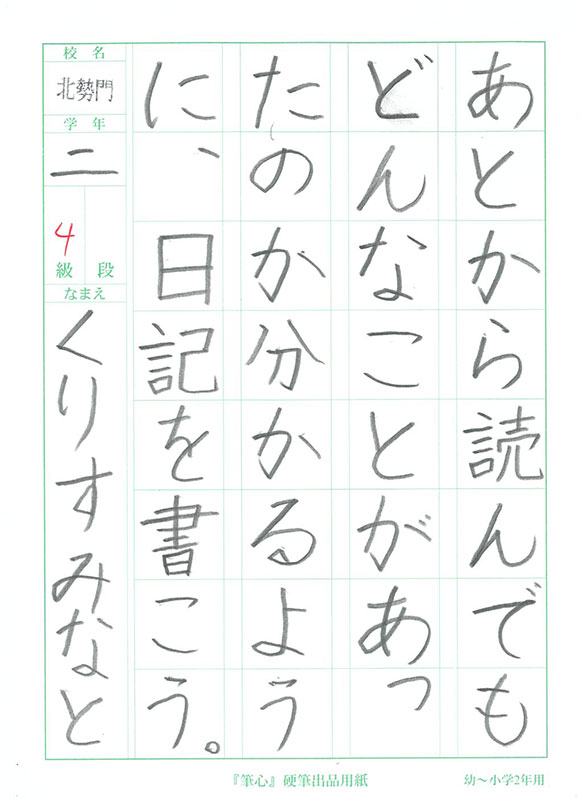 あとから読んでも
どんなことがあっ
たのか分かるよう
に、日記を書こう。
校名
北勢門
学年
二
4
級 段
なまえ
くりすみなと
『筆心』硬筆出品用紙
幼〜小学2年用